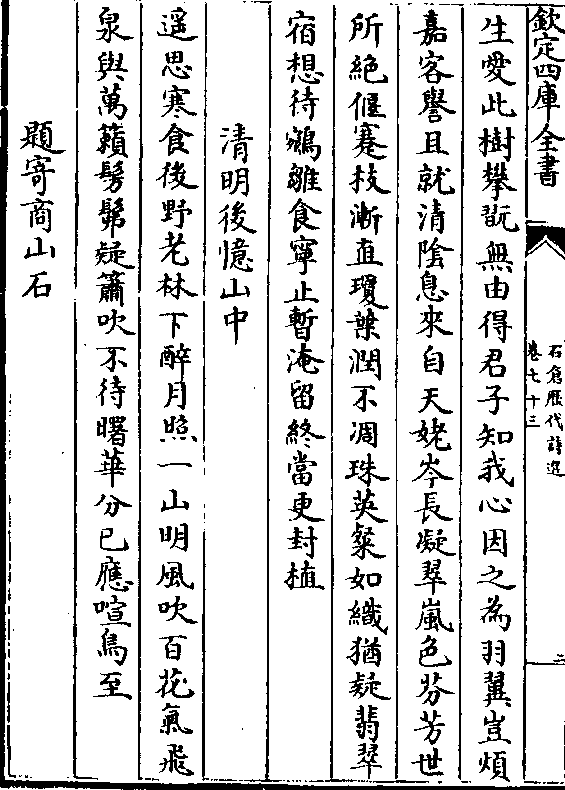 欽定四庫全書
石倉歷代詩選
卷七十三
二
生愛此樹攀翫無由得君子知我心因之為羽翼豈煩
嘉客譽且就清陰息來自天姥岑長凝翠嵐色芬芳世
所絶偃蹇枝漸直瓊葉潤不凋珠英粲如織猶疑翡翠
宿想待鵷雛食寧止暫淹留終當更封植
清明後憶山中
遥思寒食後野老林下醉月照一山明風吹百花氣飛
泉與萬籟髣髴疑簫吹不待曙華分已應喧鳥至
題寄商山石